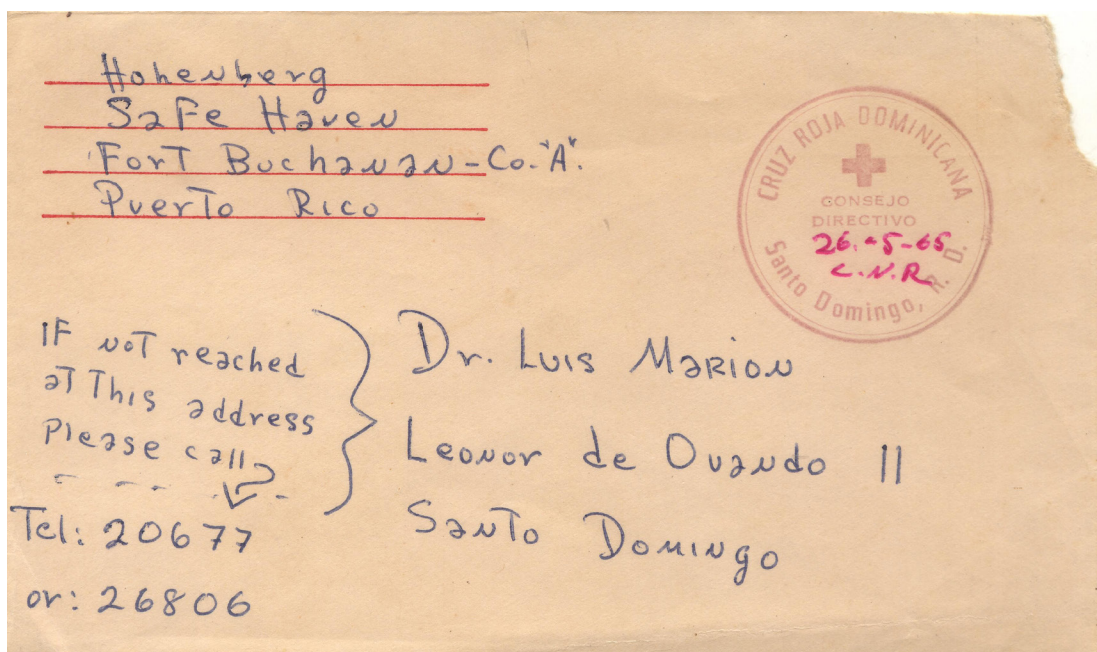 Hohenberg
Safe Haven
Fort Buchanan-Co."A".
Puerto Rico
CRUZ ROJA DOMINICANA
CONSEJO
DIRECTIVO
26.-5-65
C.N.R
Santo Domingo, R. D.
IF not reached
at This address
Please call
Tel: 20677
or: 26806
Dr. Luis Marion
Leonor de Ovando 11
Santo Domingo